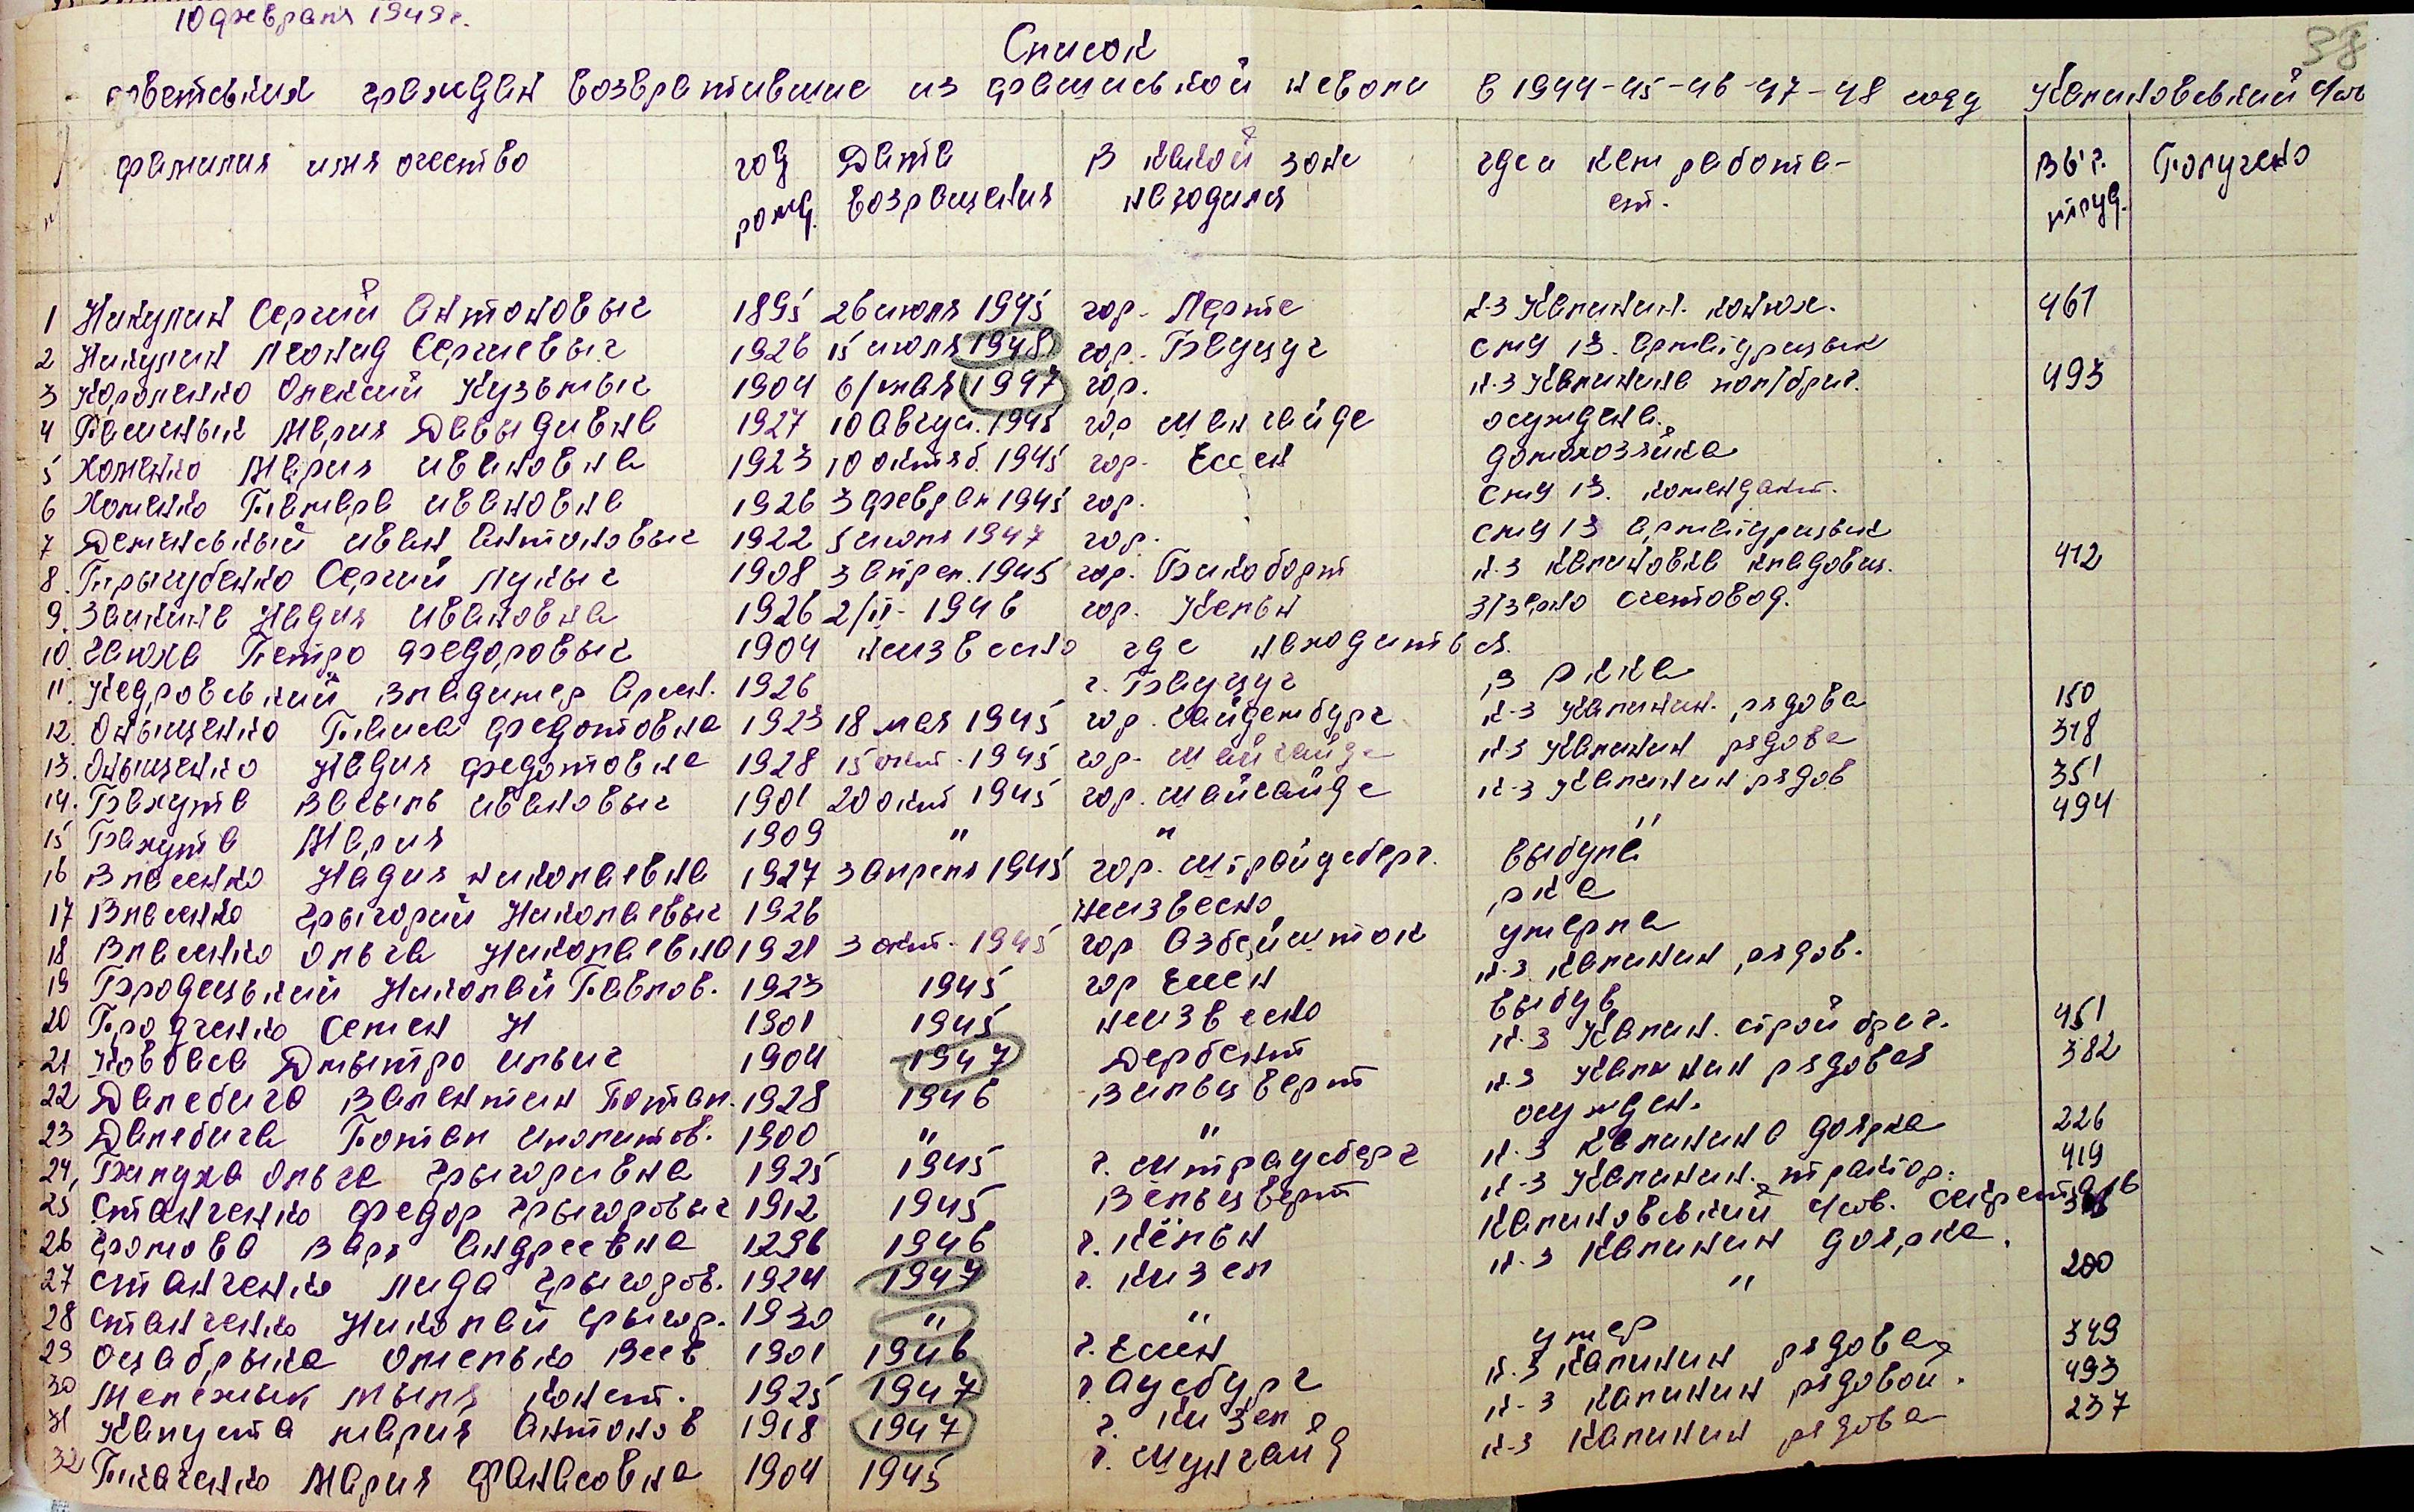 10 февраля 1949 г.
38
Список
советських граждан возвратившие из фашиськой неволи в 1944-45-46-47-48 году Калиновський с/сов
фамилия имя очество год рожд. Дата возращения В какой зоне находился где и кем работа-ет. выр. труд. Получено
1 Никулин Сергий Антоновыч 1895 26 июля 1945 гор. Лерте к-з Калинин. конюх. 461
2 Никулин Леонид Сергиевыч 1926 15 июля 1948 гор. Бауцуг сму 13. арматурщык
3 Короленко Олексий Кузьмыч 1904 6/мая 1947 гор. к-з Калинина пол/бриг. 493
4 Пашиннык Мария Давыдивна 1927 10 Авгус. 1945 гор Мангайде осужденa.
5 Хоменко Мария Ивановна 1923 10 октяб. 1945 гор. Ессен домохозяйка
6 Хоменко Тамара Ивановна 1926 3 феврал 1945 гор. сму 13. комендант.
7 Деминський Иван Антоновыч 1922 5 июля 1947 гор. сму 13 арматурщык
8. Прычубенко Сергий Лукыч 1908 3 апрел. 1945 гор. Бикоборт к-з Калиновка кладовщ. 412
9. Заикина Надия Ивановна 1926 2/II- 1946 гор. Кельн з/зерно счетовод.
10. Гаюха Петро Федоровыч 1904 неизвесно где находиться.
11. Кедровський Владимер Арсен. 1926 г. Бауцуг в РККа
12. Оныщенко Таиса Федотовна 1923 18 мая 1945 гор. Гайдембург к-з Калинин. рядова 150
13. Оныщенко Надия Федотовна 1928 15 окт. 1945 гор. Майгайде к-з Калинин рядова 318
14. Бакута Васыль Ивановыч 1901 20 окт 1945 гор. Майгайде к-з Калинин рядов 351
15 Бакута Мария 1909 " " " 494
16 Власенко Надия Николаевна 1927 3 апреля 1945 гор. Штрайусберг. выбула
17 Власенко Грыгорий Николаевыч 1926 неизвесно рка
18 Власенко Ольга Николаевна 1921 3 окт. 1945 гор Азбейшток умерла
19 Бродецький Николай Павлов. 1923 1945 гор Ессен к-з Калинин рядов.
20 Продченко Семен Н 1901 1945 неизвесно выбув
21 Ковбаса Дмытро Илыч 1904 1947 Дербент к-з Калин. строй бриг. 451
22 Далебига Валентин Потап. 1928 1946 Вильцверт к-з Калинин рядовая 382
23 Далебига Потап Иполитов. 1900 " " осужден.
24, Бжлуха Ольга Грыгоривна 1925 1945 г. Штраусберг к-з Калинина доярка 226
25 Станченко Федор Грыгоровыч 1912 1945 Вельцверт к-з Калинин. трактор. 419
26 Громова Варя Андреевна 1296 1946 г. Кёльн Калиновський с/сов. секретарь
27 Станченко Лида Грыгоров. 1924 1947 г. Кизел к-з Калинин доярка.
28 Станченко Николай Грыгор. 1930 " " " 200
29 Оцабрыка Омелько Вссв 1901 1946 г. Ессен умер
30 Мележык Мыля Конст. 1925 1947 г Аусбург к-з Калинин рядовая 349
31 Капуста Мария Антонов 1918 1947 г. Кизел к-з Калинин рядовой. 493
32 Ткаченко Мария Фанасовна 1904 1945 г. Мунгайд к-з Калинин рядова 237